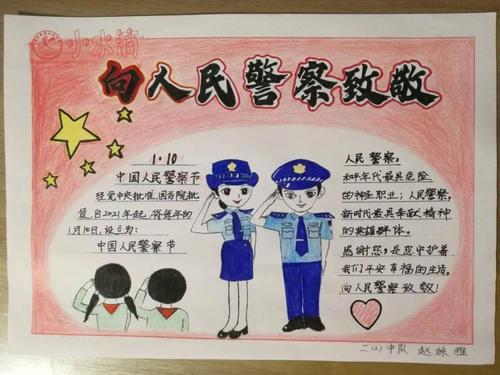 小水滴
向人民警察致敬
1·10
中国人民警察节
经党中央批准、国务院批
复，自2021年起，将每年的
1月10日，设立为：
中国人民警察节
人民警察，
和平年代最具危险
的神圣职业；人民警察，
新时代最具奉献精神
的英雄群体。
感谢您，是您守护着
我们平安幸福的生活，
向人民警察致敬！
二(2)中队 赵姝雅